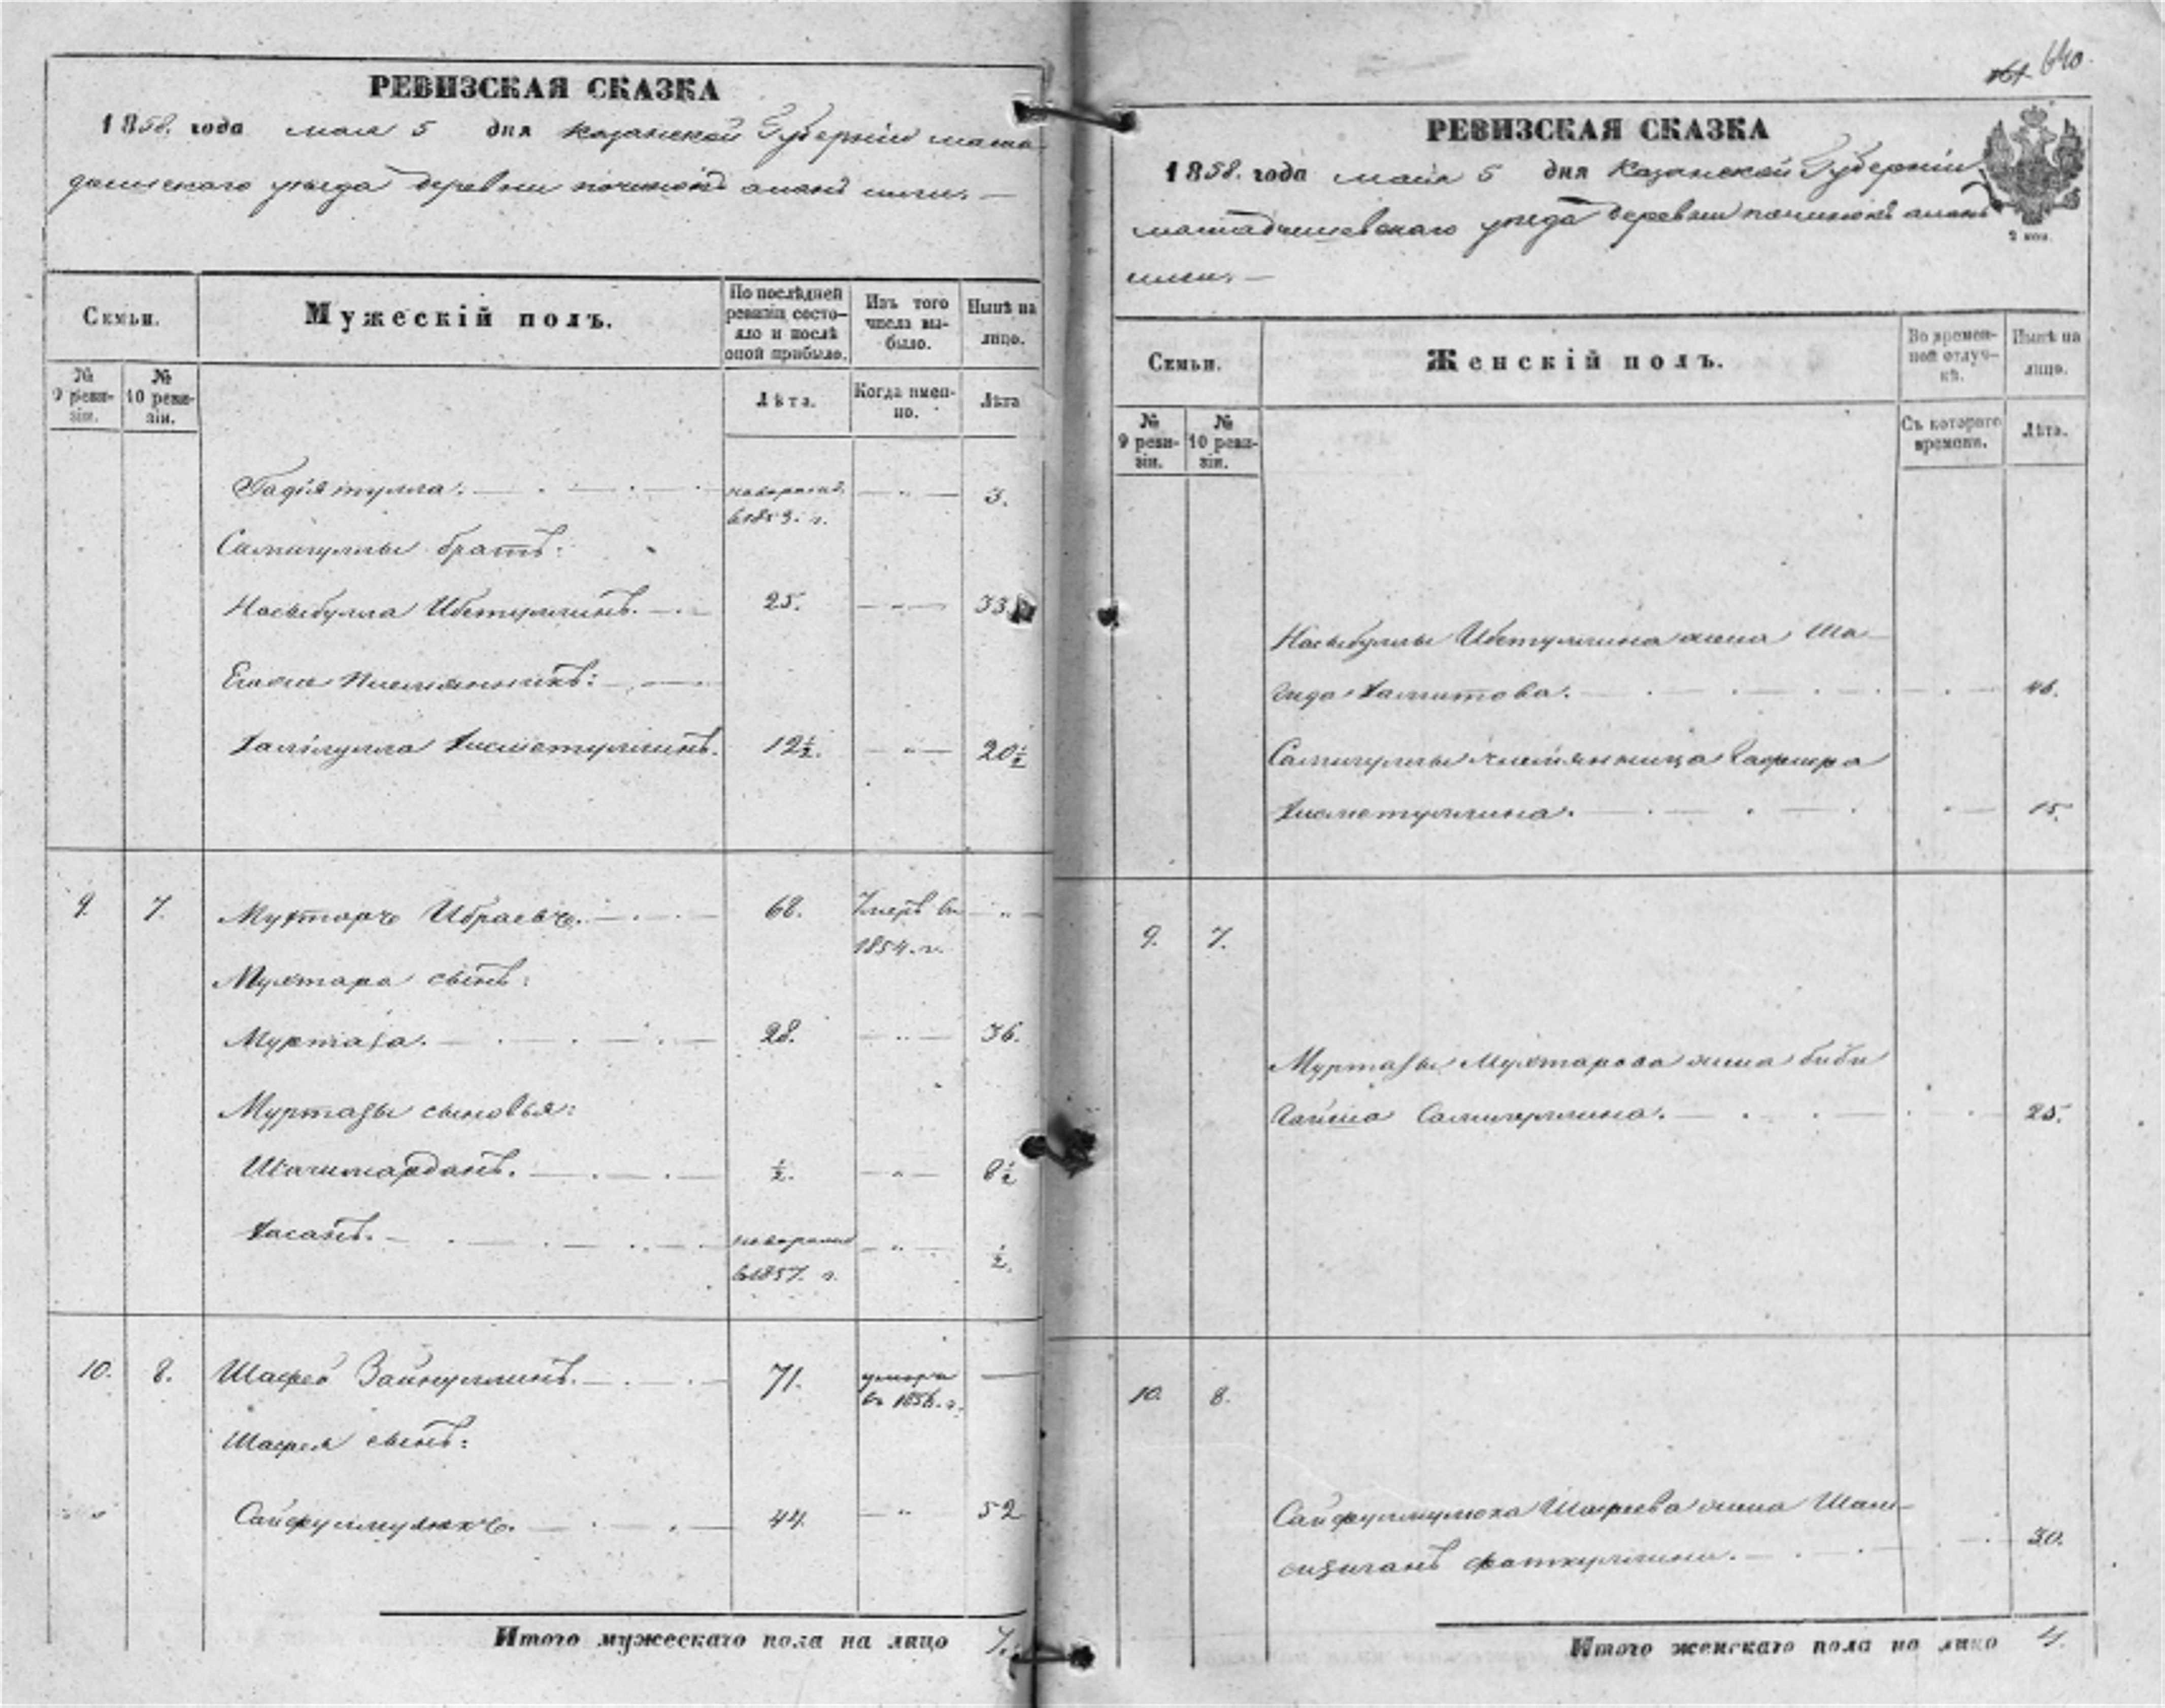 РЕВИЗСКАЯ СКАЗКА
1858. года мая 5 дня Казанской Губернии мама
дышскаго уезда деревни починокъ
Семьи.
Мужескій полъ.
По послѣдней ревизіи состояло и послѣ оной прибыло.
Изъ того числа выбыло.
Нынѣ на лицо.
№ 9 ревизіи.
№ 10 ревизіи.
Лѣта.
Когда именно.
Лѣта
Гадіятулла. новорожд. — " — 3.
в 1853. г.
Самигуллы братъ:
25. — " — 33.
Егоже племянникъ:
Халилулла Хисметуллинъ. 12½. — " — 20½
9. 7. Мухтаръ Ибраевъ. 68. Умеръ въ — " —
1854. г.
Мухтара сынъ:
Муртаза. 28. — " — 36.
Муртазы сыновья:
Шагимарданъ. ½. — " — 8½
Хасанъ. новорожд — " — ½.
в 1857. г.
10. 8. Шафей Зайнуллинъ. 71. умеръ —
въ 1856. г.
Шафея сынъ:
Сайфулмулюкъ. 44. — " 52
Итого мужескаго пола на лицо 7.
640.
РЕВИЗСКАЯ СКАЗКА
1858. года мая 5 дня Казанской Губерніи
уезда деревни починокъ
2 коп.
Семьи.
Женскій полъ.
Во временной отлучкѣ.
Нынѣ на лицо.
№ 9 ревизіи.
№ 10 ревизіи.
Съ котораго времени.
Лѣта.
жена Ша-
гида Хамитова. 46.
Самигуллы племянница Гафира
Хисметуллина. 15.
9. 7.
Муртазы Мухтарова жена биби
Гайша Самигуллина. 25.
10. 8.
Сайфулмулюка Шафеева жена Шам-
Фаткуллина. 30.
Итого женскаго пола на лицо 4.